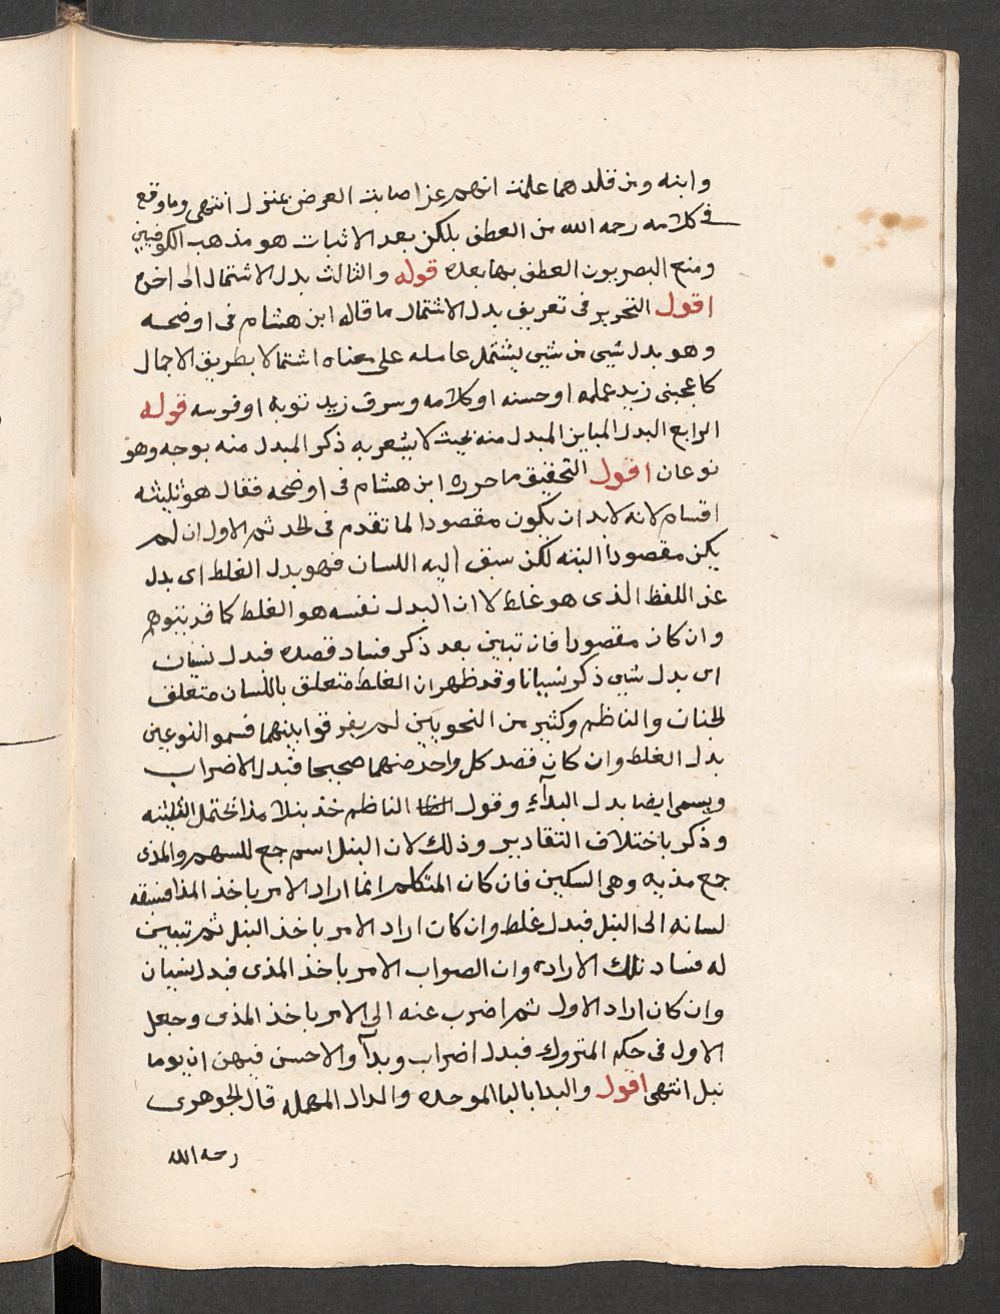 وابنه ومن قلدهما علمت انهم عن اصابت الغرض بمعزل انتهى وما وقع
في كلامه رحمه الله من العطف بلكن بعد الاثبات هو مذهب الكوفيين
ومنع البصريون العطف بها بعده قوله والثالث بدل الاشتمال الى اخره
اقول التحرير في تعريف بدل الاشتمال ما قاله ابن هشام في اوضحه
وهو بدل شيي من شيي يشتمل عامله على معناه اشتمالا بطريق الاجمال
كاعجبني زيد علمه او حسنه او كلامه وسرق زيد ثوبه او فرسه قوله
الرابع البدل المباين المبدل منه بحيث لا يشعر به ذكر المبدل منه بوجه وهو
نوعان اقول التحقيق ما حرره ابن هشام في اوضحه فقال هو ثلثه
اقسام لانه لابد ان يكون مقصودا لما تقدم في الحد ثم الاول ان لم
يكن مقصودا البته لكن سبق اليه اللسان فهو بدل الغلط اى بدل
عن اللفظ الذى هو غلط لا ان البدل نفسه هو الغلط كما قد يتوهم
وان كان مقصودا فان تبين بعد ذكر فساد قصده فبدل نسيان
اى بدل شيي ذكر نسيانا وقد ظهر ان الغلط متعلق باللسان متعلق
لجنان والناظم وكثير من النحويين لم يفرقوا بينهما فسموا النوعين
بدل الغلط وان كان قصد كل واحد منهما صحيحا فبدل الاضراب
ويسمى ايضا بدل البدآء وقول الناظم خذ نبلا مدا تحتمل الثلثه
وذكر باختلاف التقادير وذلك لان النبل اسم جمع للسهم والمدى
جمع مديه وهى السكين فان كان المتكلم انما اراد الامر باخذ المدا فسبقه
لسانه الى النبل فبدل غلط وان كان اراد الامر باخذ النبل ثم تبين
له فساد تلك الارادة وان الصواب الامر باخذ المدى فبدل نسيان
وان كان اراد الاول ثم اضرب عنه الى الامر باخذ المدى وجعل
الاول في حكم المتروك فبدل اضراب وبدآ والاحسن فيهن ان يوما
نبل انتهى اقول والبدا بالبا الموحده والدال المهمله قال الجوهرى
رحمه الله